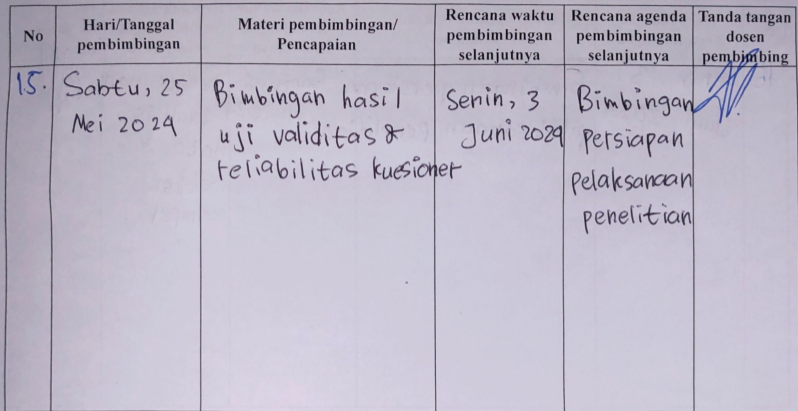 No
Hari/Tanggal
pembimbingan
Materi pembimbingan/
Pencapaian
Rencana waktu
pembimbingan
selanjutnya
Rencana agenda
pembimbingan
selanjutnya
Tanda tangan
dosen
pembimbing
15.
Sabtu, 25
Mei 2024
Bimbingan hasil
uji validitas &
reliabilitas kuesioner
Senin, 3
Juni 2024
Bimbingan
persiapan
pelaksanaan
penelitian